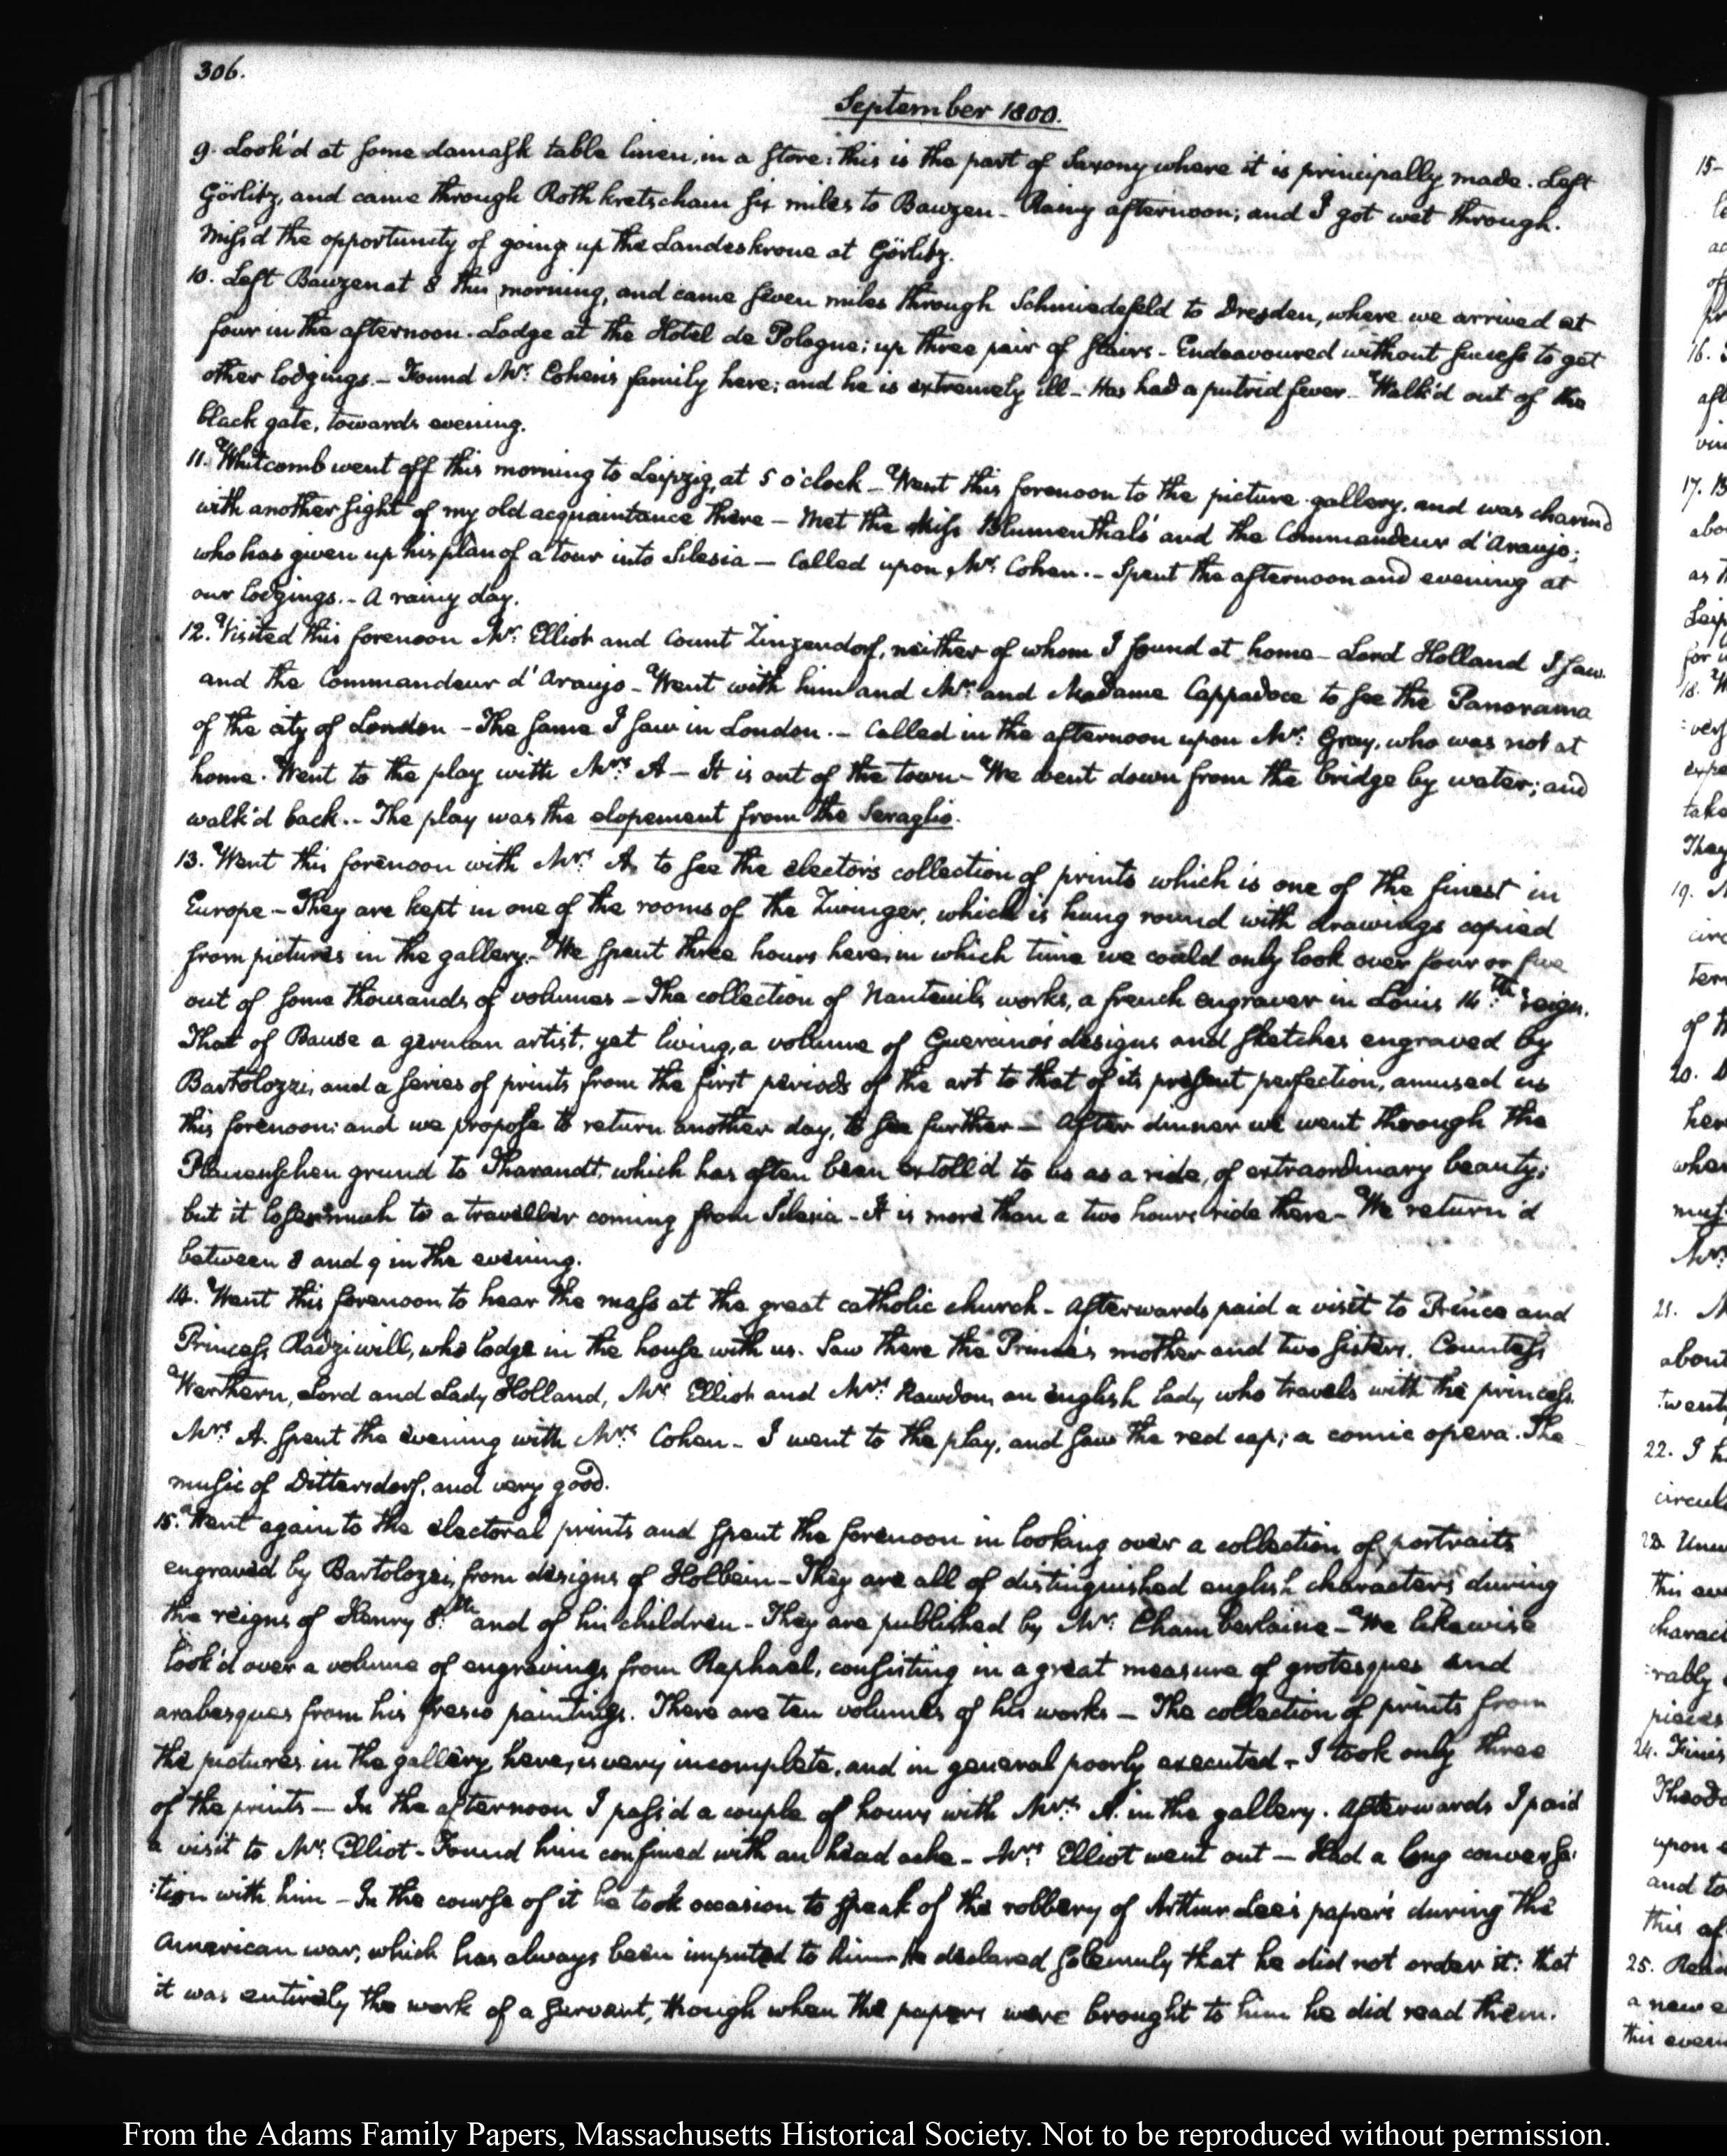 306.
September 1800.
9. Look'd at some damask table linen, in a store: this is the part of Saxony where it is principally made. Left
Görlitz, and came through Rothkretscham six miles to Bauzen - Rainy afternoon; and I got wet through.
Miss'd the opportunity of going up the Landeskrone at Görlitz.
10. Left Bauzen at 8 this morning, and came seven miles through Schmiedefeld to Dresden, where we arrived at
four in the afternoon. Lodge at the Hotel de Pologne; up three pair of stairs - Endeavoured without success to get
other lodgings. - Found Mr. Cohen's family here; and he is extremely ill - Has had a putrid fever - Walk'd out of the
black gate, towards evening.
11. Whitcomb went off this morning to Leipzig, at 5 o'clock - Went this forenoon to the picture gallery, and was charm'd
with another sight of my old acquaintance there - Met the Miss Blumenthals' and the Commandeur d'Araujo;
who has given up his plan of a tour into Silesia - Called upon Mr. Cohen. - Spent the afternoon and evening at
our lodgings. - A rainy day.
12. Visited this forenoon Mr. Elliot and Count Zinzendorf, neither of whom I found at home - Lord Holland I saw.
and the Commandeur d'Araujo - Went with him and Mr. and Madame Cappadoce to see the Panorama
of the city of London - The same I saw in London. - Called in the afternoon upon Mr. Gray, who was not at
home. Went to the play with Mrs. A - It is out of the town - We went down from the bridge by water; and
walk'd back. - The play was the elopement from the Seraglio.
13. Went this forenoon with Mrs. A, to see the elector's collection of prints which is one of the finest in
Europe - They are kept in one of the rooms of the Zwinger, which is hung round with drawings copied
from pictures in the gallery. - We spent three hours here, in which time we could only look over four or five
out of some thousands of volumes - The collection of Nanteuil's works, a french engraver in Louis 14.th's reign.
That of Bause a german artist, yet living, a volume of Guercino's designs and sketches engraved by
Bartolozzi, and a series of prints from the first periods of the art to that of its present perfection, amused us
this forenoon: and we propose to return another day, to see further - After dinner we went through the
Plauenschen grund to Tharandt, which has often been extoll'd to us as a ride, of extraordinary beauty;
but it loses much to a traveller coming from Silesia - It is more than a two hours ride there - We return'd
between 8 and 9 in the evening.
14. Went this forenoon to hear the mass at the great catholic church - Afterwards paid a visit to Prince and
Princess Radziwill, who lodge in the house with us. Saw there the Prince's mother and two sisters, Countess
Werthern, Lord and Lady Holland, Mr. Elliot and Mrs. Rawdon, an english lady who travels with the princess.
Mrs. A. spent the evening with Mrs. Cohen - I went to the play, and saw the red cap; a comic opera. The
music of Dittersdorf, and very good.
15. Went again to the electoral prints and spent the forenoon in looking over a collection of portraits
engraved by Bartolozzi, from designs of Holbein - They are all of distinguished english characters during
the reigns of Henry 8.th and of his children - They are published by Mr. Chamberlaine - We likewise
look'd over a volume of engravings from Raphael, consisting in a great measure of grotesques and
arabesques from his fresco paintings. There are ten volumes of his works - The collection of prints from
the pictures in the gallery here, is very incomplete, and in general poorly executed - I took only three
of the prints - In the afternoon I pass'd a couple of hours with Mrs. A. in the gallery. Afterwards I paid
a visit to Mr. Elliot - Found him confined with an head ache - Mrs. Elliot went out - Had a long conversa:
:tion with him - In the course of it he took occasion to speak of the robbery of Arthur Lee's papers during the
American war, which has always been imputed to him - he declared solemnly that he did not order it: that
it was entirely the work of a servant, though when the papers were brought to him he did read them.
From the Adams Family Papers, Massachusetts Historical Society. Not to be reproduced without permission.